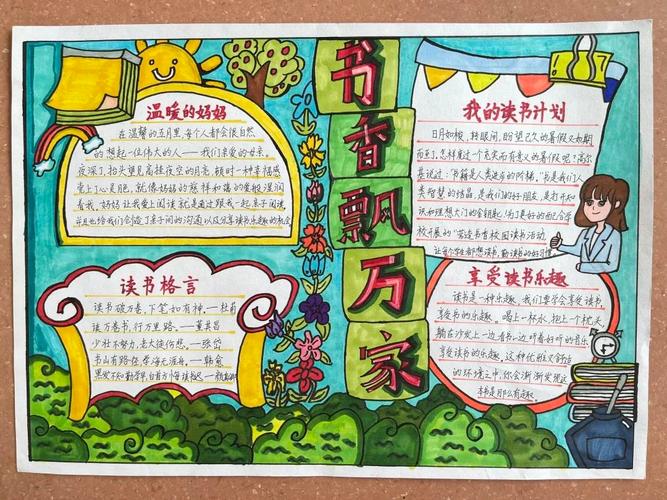 书香飘万家
温暖的妈妈
在温馨的五月里,每个人都会很自然
的想起一位伟大的人——我们亲爱的母亲。
夜深了,抬头望见高挂夜空的月亮,顿时一种幸福感
爱上了心是肥,就像妈妈的慈祥和蔼的爱般滋润
着我。妈妈让我爱上阅读就是通过跟我一起亲子阅读,
并且也给我们创造了亲子间的沟通以及分享读书乐趣的机会
读书格言
读书破万卷,下笔如有神。——杜甫
读万卷书,行万里路。——董其昌
少壮不努力,老大徒伤悲。——张岱
书山有路勤为径,学海无涯舟。——韩愈
黑发不知勤学早,白首方悔读书迟。——颜真卿
我的读书计划
日月如梭,转眼间,盼望已久的暑假又如期
而至了,怎样度过一个充实而有意义的暑假呢?高尔
基说过:“书籍是人类进步的阶梯。”书是我们人
类智慧的结晶,是我们的好朋友,是打开知
识和理想大门的金钥匙,为了更好的配合学
校开展的“营造书香校园”读书活动,
让每个学生都想读书,勤读书的好习惯。
享受读书乐趣
读书是一种乐趣,我们要学会享受读书,
享受书的乐趣。喝上一杯水,抱上一个枕头,
躺在沙发上一边看书,一边听着好听的音乐
享受读书的乐趣。这样优雅又舒适
的环境之中,你会渐渐发现这
本书是那么有趣